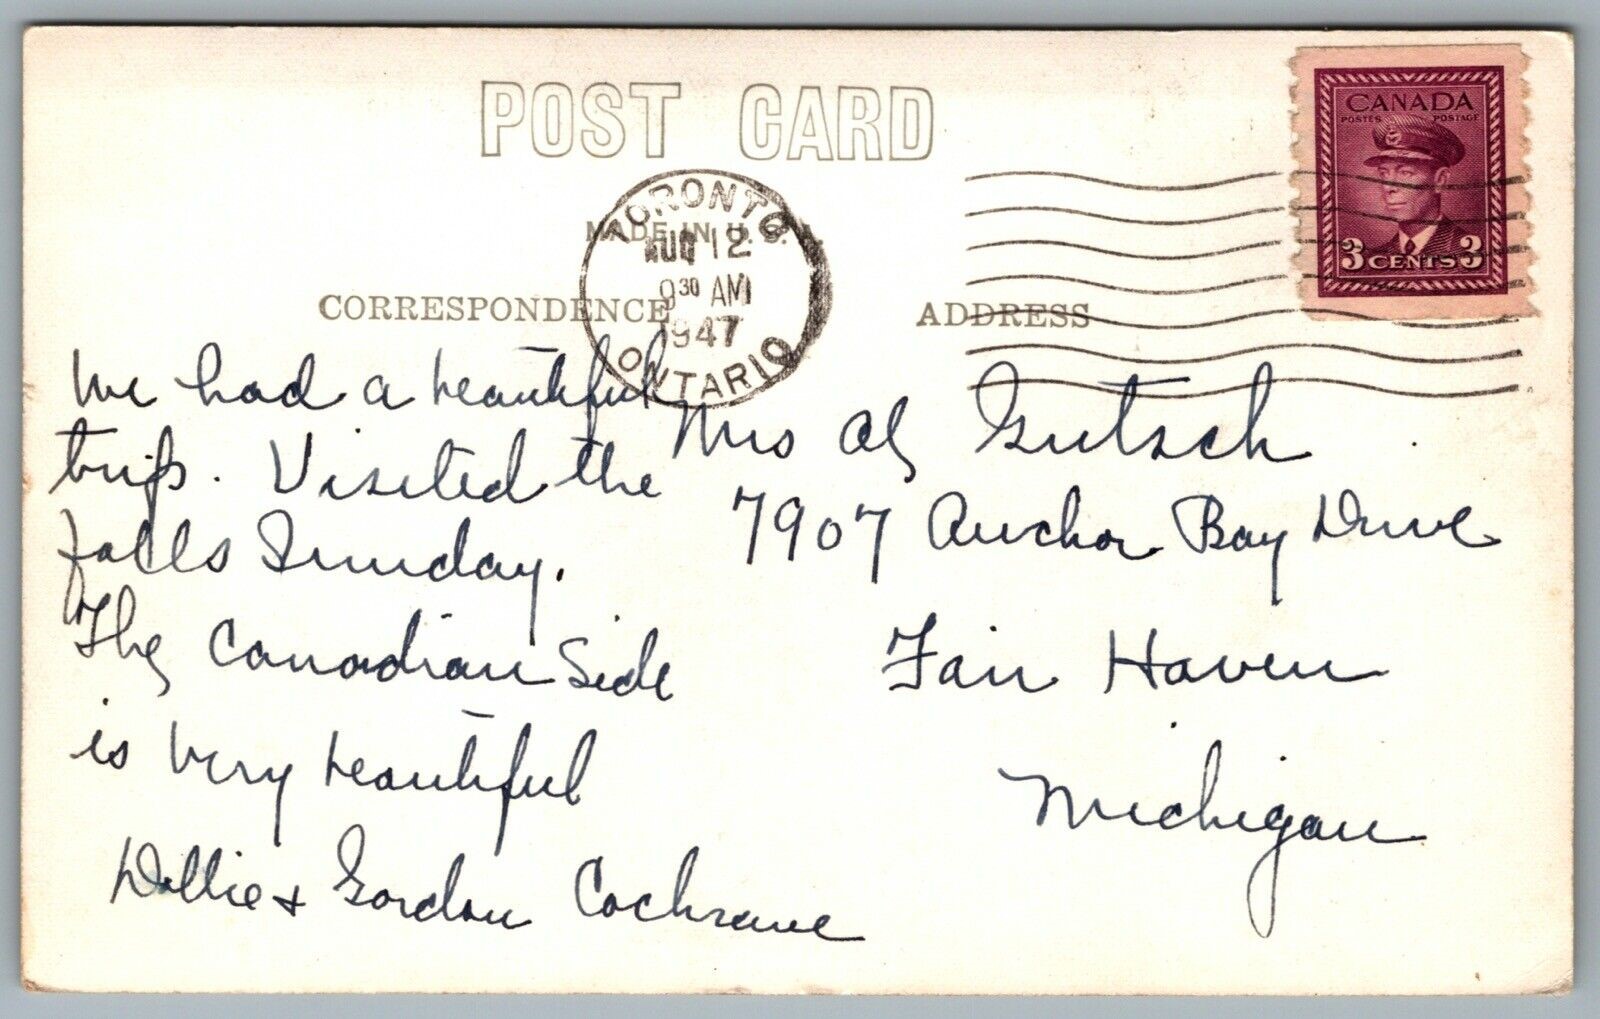 POST CARD
CANADA
POSTES POSTAGE
3 CENTS 3
TORONTO
AUG 12
9 30 AM
1947
ONTARIO
MADE IN U. S. A.
CORRESPONDENCE
ADDRESS
We had a beautiful
trip. Visited the
falls Sunday.
The Canadian Side
is very beautiful
Dollie & Gordon Cochrane
Mrs Al Gutsch
7907 Anchor Bay Drive
Fair Haven
Michigan